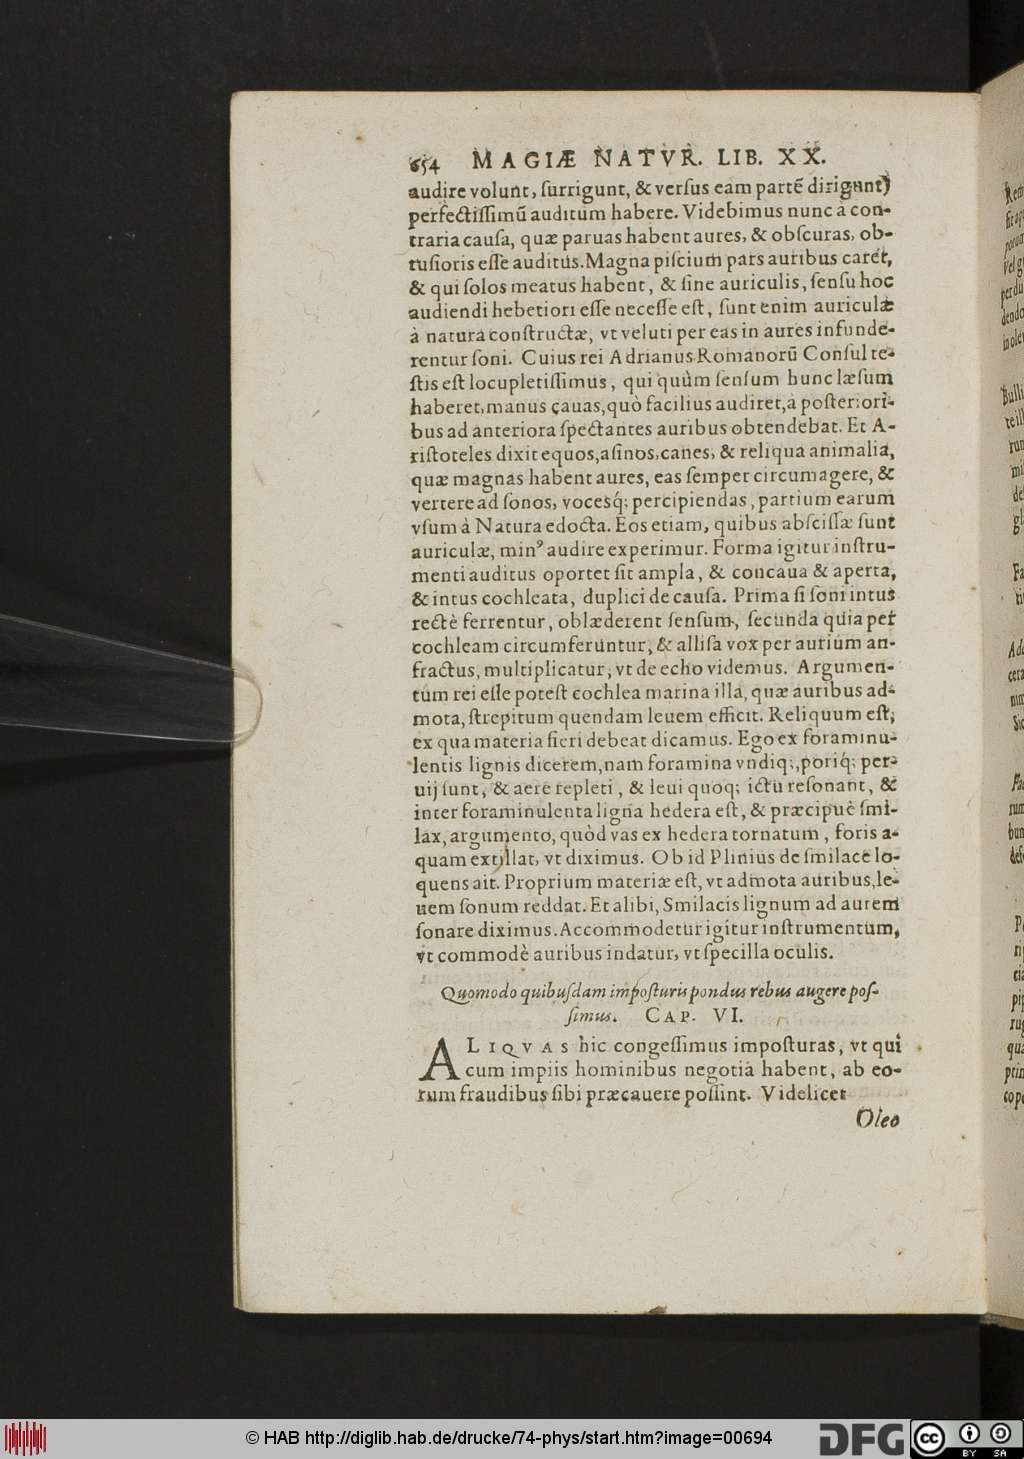 654 MAGIÆ NATVR. LIB. XX.
audire volunt, ſurrigunt, & verſus eam partẽ dirigunt)
perfectiſſimũ auditum habere. Videbimus nunc à con-
traria cauſa, quæ paruas habent aures, & obſcuras, ob-
tuſioris eſſe auditus. Magna piſcium pars auribus caret,
& qui ſolos meatus habent, & ſine auriculis, ſenſu hoc
audiendi hebetiori eſſe neceſſe eſt, ſunt enim auriculæ
à natura conſtructæ, vt veluti per eas in aures infunde-
rentur ſoni. Cuius rei Adrianus Romanorũ Conſul te-
ſtis eſt locupletiſſimus, qui quùm ſenſum hunc læſum
haberet, manus cauas, quò facilius audiret, à poſteriori-
bus ad anteriora ſpectantes auribus obtendebat. Et A-
riſtoteles dixit equos, aſinos, canes, & reliqua animalia,
quæ magnas habent aures, eas ſemper circumagere, &
vertere ad ſonos, vocesq́; percipiendas, partium earum
vſum à Natura edocta. Eos etiam, quibus abſciſſæ ſunt
auriculæ, minꝰ audire experimur. Forma igitur inſtru-
menti auditus oportet ſit ampla, & concaua & aperta,
& intus cochleata, duplici de cauſa. Prima ſi ſoni intus
rectè ferrentur, oblæderent ſenſum, ſecunda quia per
cochleam circumferuntur, & alliſa vox per aurium an-
fractus, multiplicatur, vt de echo videmus. Argumen-
tum rei eſſe poteſt cochlea marina illa, quæ auribus ad-
mota, ſtrepitum quendam leuem efficit. Reliquum eſt,
ex qua materia fieri debeat dicamus. Ego ex foraminu-
lentis lignis dicerem, nam foramina vndiq;, poriq́; per-
uij ſunt, & aere repleti, & leui quoq; ictu reſonant, &
inter foraminulenta ligna hedera eſt, & præcipuè ſmi-
lax, argumento, quòd vas ex hedera tornatum, foris a-
quam extillat, vt diximus. Ob id Plinius de ſmilace lo-
quens ait. Proprium materiæ eſt, vt admota auribus, le-
uem ſonum reddat. Et alibi, Smilacis lignum ad aurem
ſonare diximus. Accommodetur igitur inſtrumentum,
vt commodè auribus indatur, vt ſpecilla oculis.
Quomodo quibuſdam impoſturis pondus rebus augere poſ-
ſimus. CAP. VI.
ALIQVAS hic congeſſimus impoſturas, vt qui
cum impiis hominibus negotia habent, ab eo-
rum fraudibus ſibi præcauere poſſint. Videlicet
Oleo
© HAB http://diglib.hab.de/drucke/74-phys/start.htm?image=00694
DFG
cc BY SA